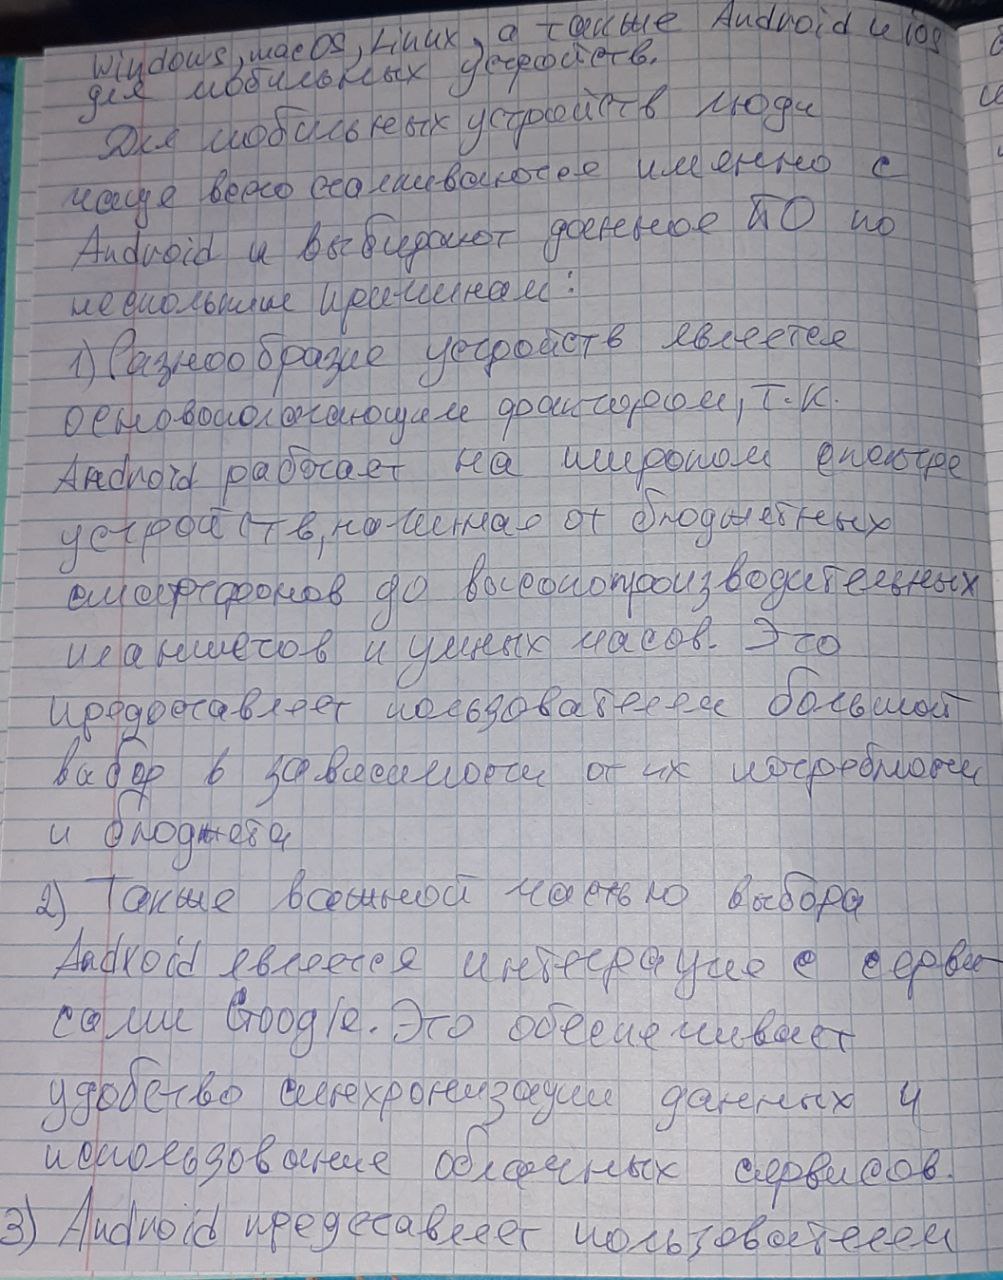 Windows, macOS, Linux, а также Android и ios
для мобильных устройств.
Для мобильных устройств люди
чаще всего сталкиваются именно с
Android и выбирают данное ПО по
нескольким причинам:
1) Разнообразие устройств является
основополагающим фактором, т.к.
Android работает на широком спектре
устройств, начиная от бюджетных
смартфонов до высокопроизводительных
планшетов и умных часов. Это
предоставляет пользователем большой
выбор в зависимости от их потребности
и бюджета
2) Также важной частью выбора
Android является интеграция с серви-
сами Google. Это обеспечивает
удобство синхронизации данных и
использование облачных сервисов.
3) Android предоставляет пользователем